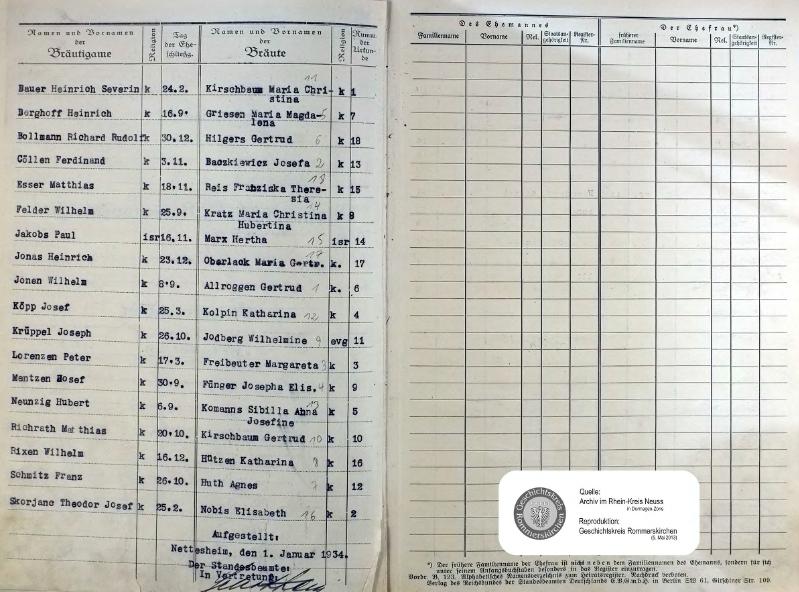 Namen und Vornamen der Bräutigame | Religion | Tag der Eheschließg. | Namen und Vornamen der Bräute | Religion | Numm. der Urkunde
Bauer Heinrich Severin k 24.2. Kirschbaum Maria Chri- 11 k 1
stina
Berghoff Heinrich k 16.9. Griesen Maria Magda- 5 k 7
lena
Bollmann Richard Rudolf k 30.12. Hilgers Gertrud 6 k 18
Cöllen Ferdinand k 3.11. Baczkiewicz Josefa 2 k 13
Esser Matthias k 18.11. Reis Franziska There- 18 k 15
sia
Felder Wilhelm k 25.9. Kratz Maria Christina 14 k 8
Hubertina
Jakobs Paul isr 16.11. Marx Hertha 15 isr 14
Jonas Heinrich k 23.12. Oberlack Maria Gertr. 17 k. 17
Jonen Wilhelm k 8.9. Allroggen Gertrud 1 k. 6
Köpp Josef k 25.3. Kolpin Katharina 12 k 4
Krüppel Joseph k 26.10. Jodberg Wilhelmine 9 evg 11
Lorenzen Peter k 17.3. Freibeuter Margareta 3 k 3
Mentzen Josef k 30.9. Fünger Josepha Elis. 4 k 9
Neunzig Hubert k 6.9. Komanns Sibilla Anna 13 k 5
Josefine
Richrath Matthias k 20.10. Kirschbaum Gertrud 10 k 10
Rixen Wilhelm k 16.12. Hützen Katharina 8 k 16
Schmitz Franz k 26.10. Huth Agnes 7 k 12
Skorjanc Theodor Josef k 25.2. Nobis Elisabeth 16 k 2
Aufgestellt:
Nettesheim, den 1. Januar 1934.
Der Standesbeamte:
In Vertretung:
Des Ehemannes | Der Ehefrau*)
Familienname | Vorname | Rel. | Staatsangehörigkeit | Register-Nr. | früherer Familienname | Vorname | Rel. | Staatsangehörigkeit | Register-Nr.
Geschichtskreis Rommerskirchen
Quelle:
Archiv im Rhein-Kreis Neuss
in Dormagen-Zons
Reproduktion:
Geschichtskreis Rommerskirchen
(5. Mai 2013)
*) Der frühere Familienname der Ehefrau ist nicht neben dem Familiennamen des Ehemanns, sondern für sich
unter seinem Anfangsbuchstaben besonders in das Register einzutragen.
Vordr. B. 123. Alphabetisches Namensverzeichnis zum Heiratsregister. Nachdruck verboten.
Verlag des Reichsbundes der Standesbeamten Deutschlands E.V.G.m.b.H. in Berlin SW 61, Gitschiner Str. 109.